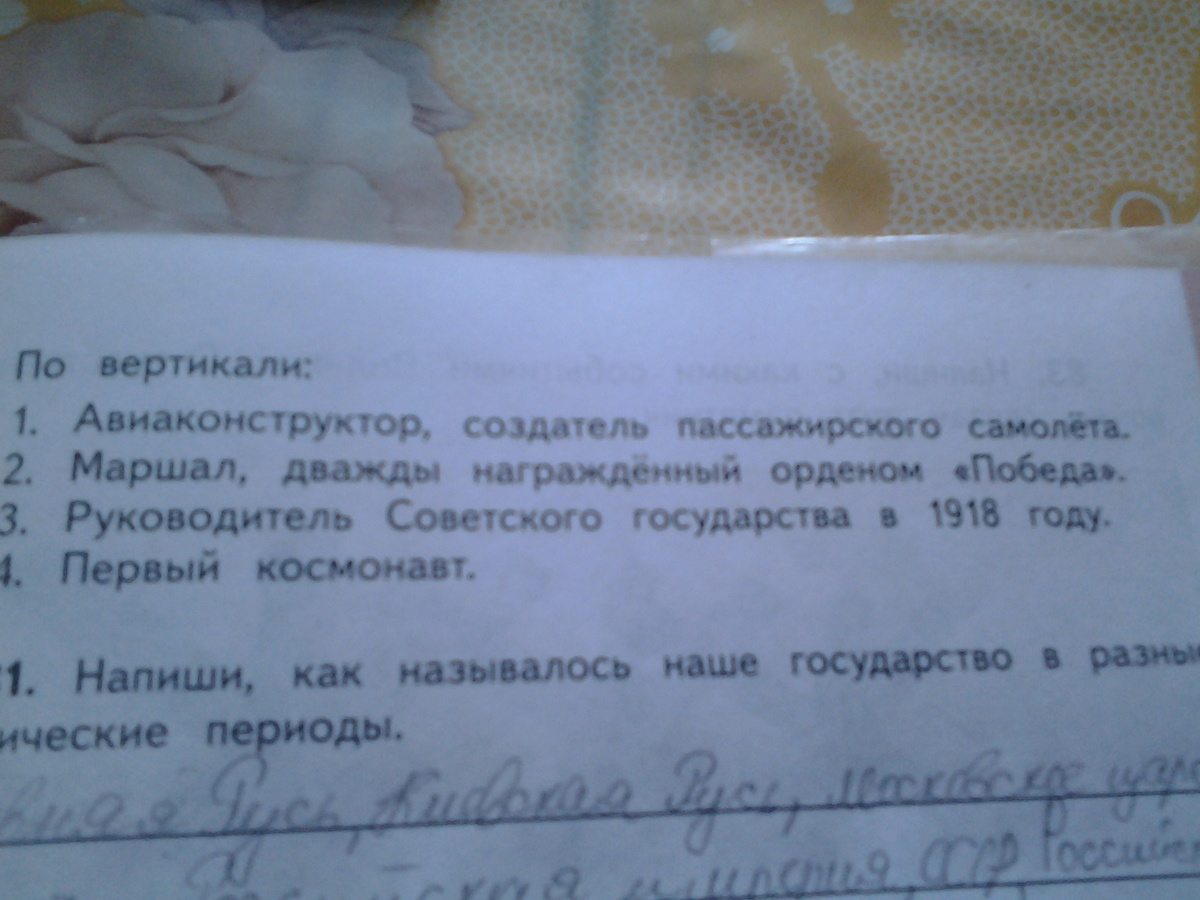 По вертикали:
1. Авиаконструктор, создатель пассажирского самолёта.
2. Маршал, дважды награждённый орденом «Победа».
3. Руководитель Советского государства в 1918 году.
4. Первый космонавт.
1. Напиши, как называлось наше государство в разные
ические периоды.
вняя Русь, Киевская Русь, Московское царс
империя, СССР, Российск